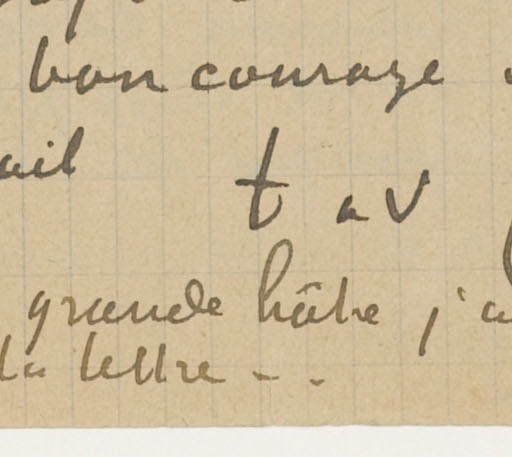 bon courage
ail t a v
grande hâte j'a
la lettre - .